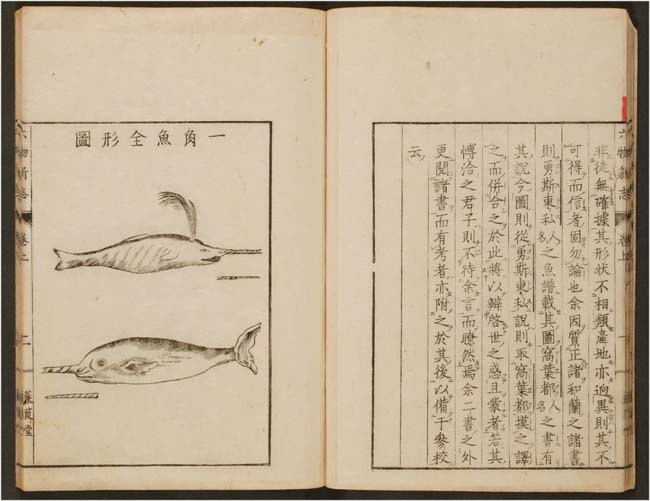 非徒無確據其形狀不相類產地亦迥異則其不
可得而信者固勿論也余因質正諸和蘭之諸書
則勇斯東私人名之魚譜載其圖窩葉都人名之書有
其說今圖則從勇斯東私說則取窩葉都摸之譯
之而併合之於此將以辨啓世之惑且蒙者若其
博洽之君子則不待余言而瞭然焉余二書之外
更閱諸書而有考者亦附之於其後以備于參校
云
六物新志
卷上
一角魚全形圖
六物新志
卷上
蒹葭堂